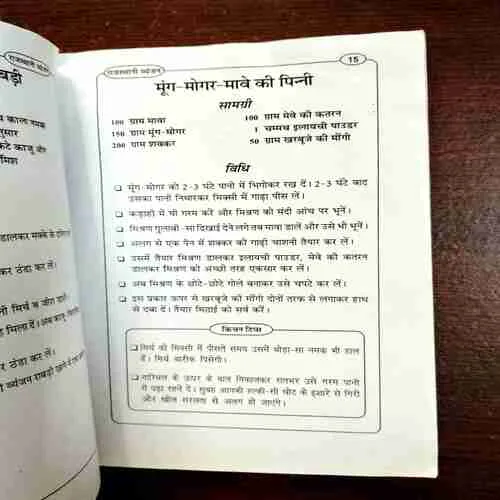 बड़ी
काला नमक
नुसार
कटे काजू और
मिश
डालकर मक्के के
कर ठंडा कर लें।
मिर्च व जीरा डालें।
मिला दें।
ठंडा कर लें।
राजस्थानी व्यंजन
15
मूंग-मोगर-मावे की पिन्नी
सामग्री
100 ग्राम मावा
100 ग्राम मेवे की कतरन
150 ग्राम मूंग-मोगर
1 चम्मच इलायची पाउडर
200 ग्राम शक्कर
50 ग्राम खरबूजे की मींगी
विधि
❑ मूंग-मोगर को 2-3 घंटे पानी में भिगोकर रख दें। 2-3 घंटे बाद
उसका पानी निथारकर मिक्सी में गाढ़ा पीस लें।
❑ कड़ाही में घी गरम करें और मिश्रण को मंदी आंच पर भूनें।
❑ मिश्रण गुलाबी-सा दिखाई देने लगे तब मावा डालें और उसे भी भूनें।
❑ अलग से एक पैन में शक्कर की गाढ़ी चाशनी तैयार कर लें।
❑ उसमें तैयार मिश्रण डालकर इलायची पाउडर, मेवे की कतरन
डालकर मिश्रण को अच्छी तरह एकसार कर लें।
❑ अब मिश्रण के छोटे-छोटे गोले बनाकर उसे चपटे कर लें।
❑ इस प्रकार ऊपर से खरबूजे की मींगी दोनों तरफ से लगाकर हाथ
से दबा दें। तैयार मिठाई को सर्व करें।
किचन टिप्स
❑ मिर्च को मिक्सी में पीसते समय उसमें थोड़ा-सा नमक भी डाल
दें। मिर्च बारीक पिसेगी।
❑ नारियल के ऊपर के बाल निकालकर रातभर उसे गरम पानी
में पड़ा रहने दें। सुबह आपकी हल्की-सी चोट के इशारे से गिरी
और खोल सरलता से अलग हो जाएंगे।